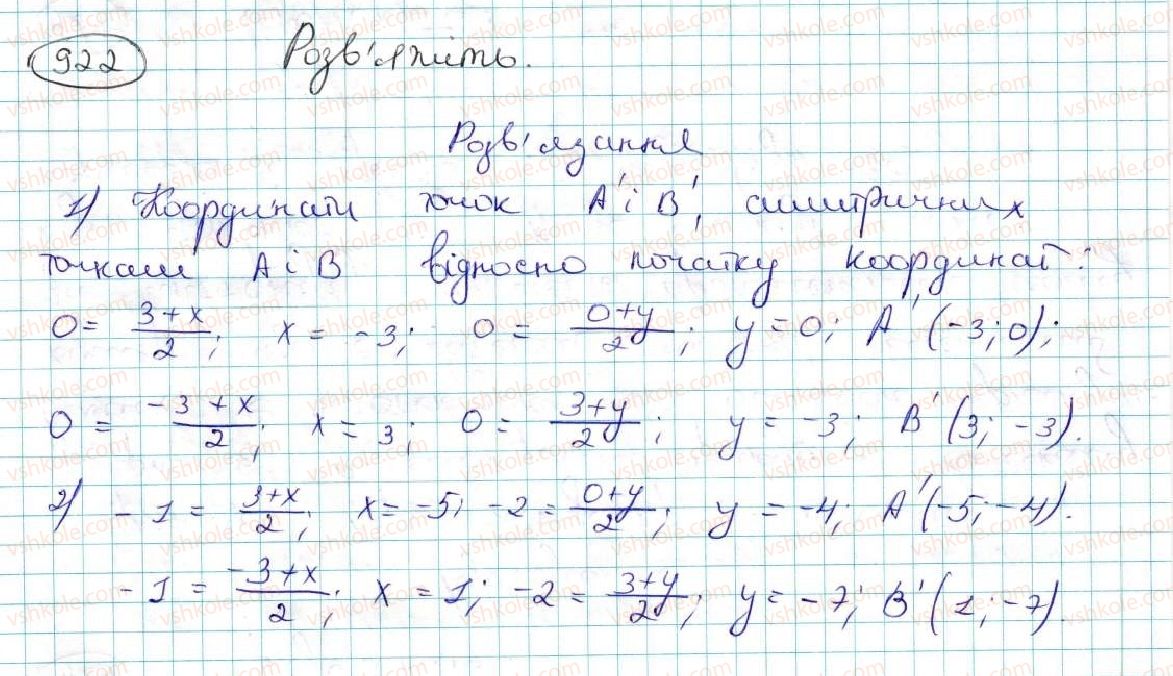 922 Розв'яжіть.
Розв'язання
1) Координати точок A' і B', симетричних
точкам A і B відносно початку координат:
0 = (3+x)/2; x = -3; 0 = (0+y)/2; y = 0; A'(-3; 0);
0 = (-3+x)/2; x = 3; 0 = (3+y)/2; y = -3; B'(3; -3).
2) -1 = (3+x)/2; x = -5; -2 = (0+y)/2; y = -4; A'(-5; -4).
-1 = (-3+x)/2; x = 1; -2 = (3+y)/2; y = -7; B'(1; -7).
vshkole.com